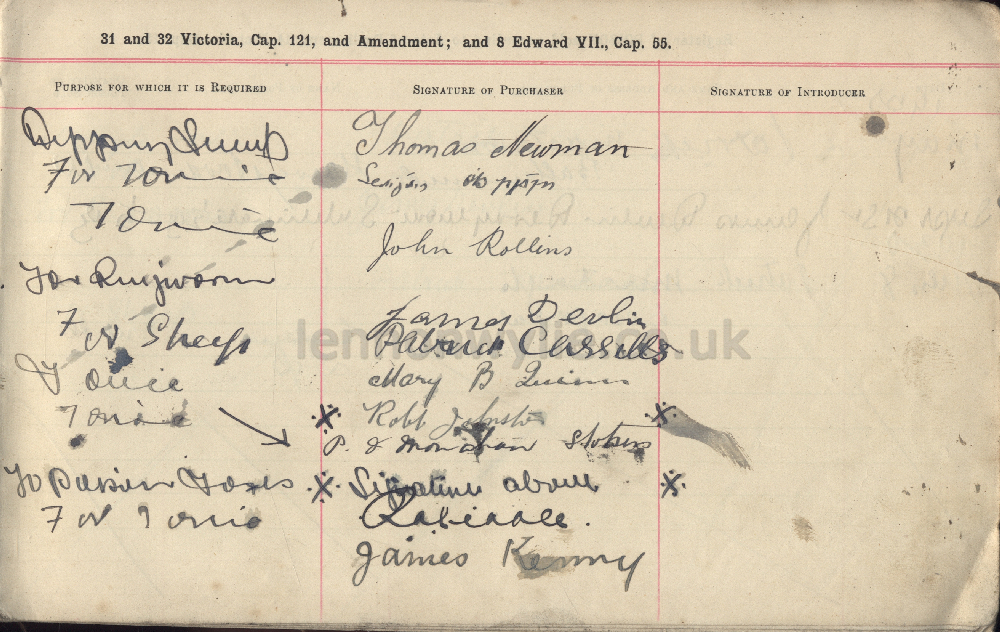 31 and 32 Victoria, Cap. 121, and Amendment; and 8 Edward VII., Cap. 55.
PURPOSE FOR WHICH IT IS REQUIRED
SIGNATURE OF PURCHASER
SIGNATURE OF INTRODUCER
Dipping Sheep
Thomas Newman
For Tonic
Tonic
John Rollins
For Ringworm
James Devlin
For Sheep
Patrick Cassells
Tonic
Mary B Quinn
Tonic
Robt Johnston
P. J Monahan Stokers
To Poison Foxes
Signature above
For Tonic
James Kenny
lennonwylie.co.uk